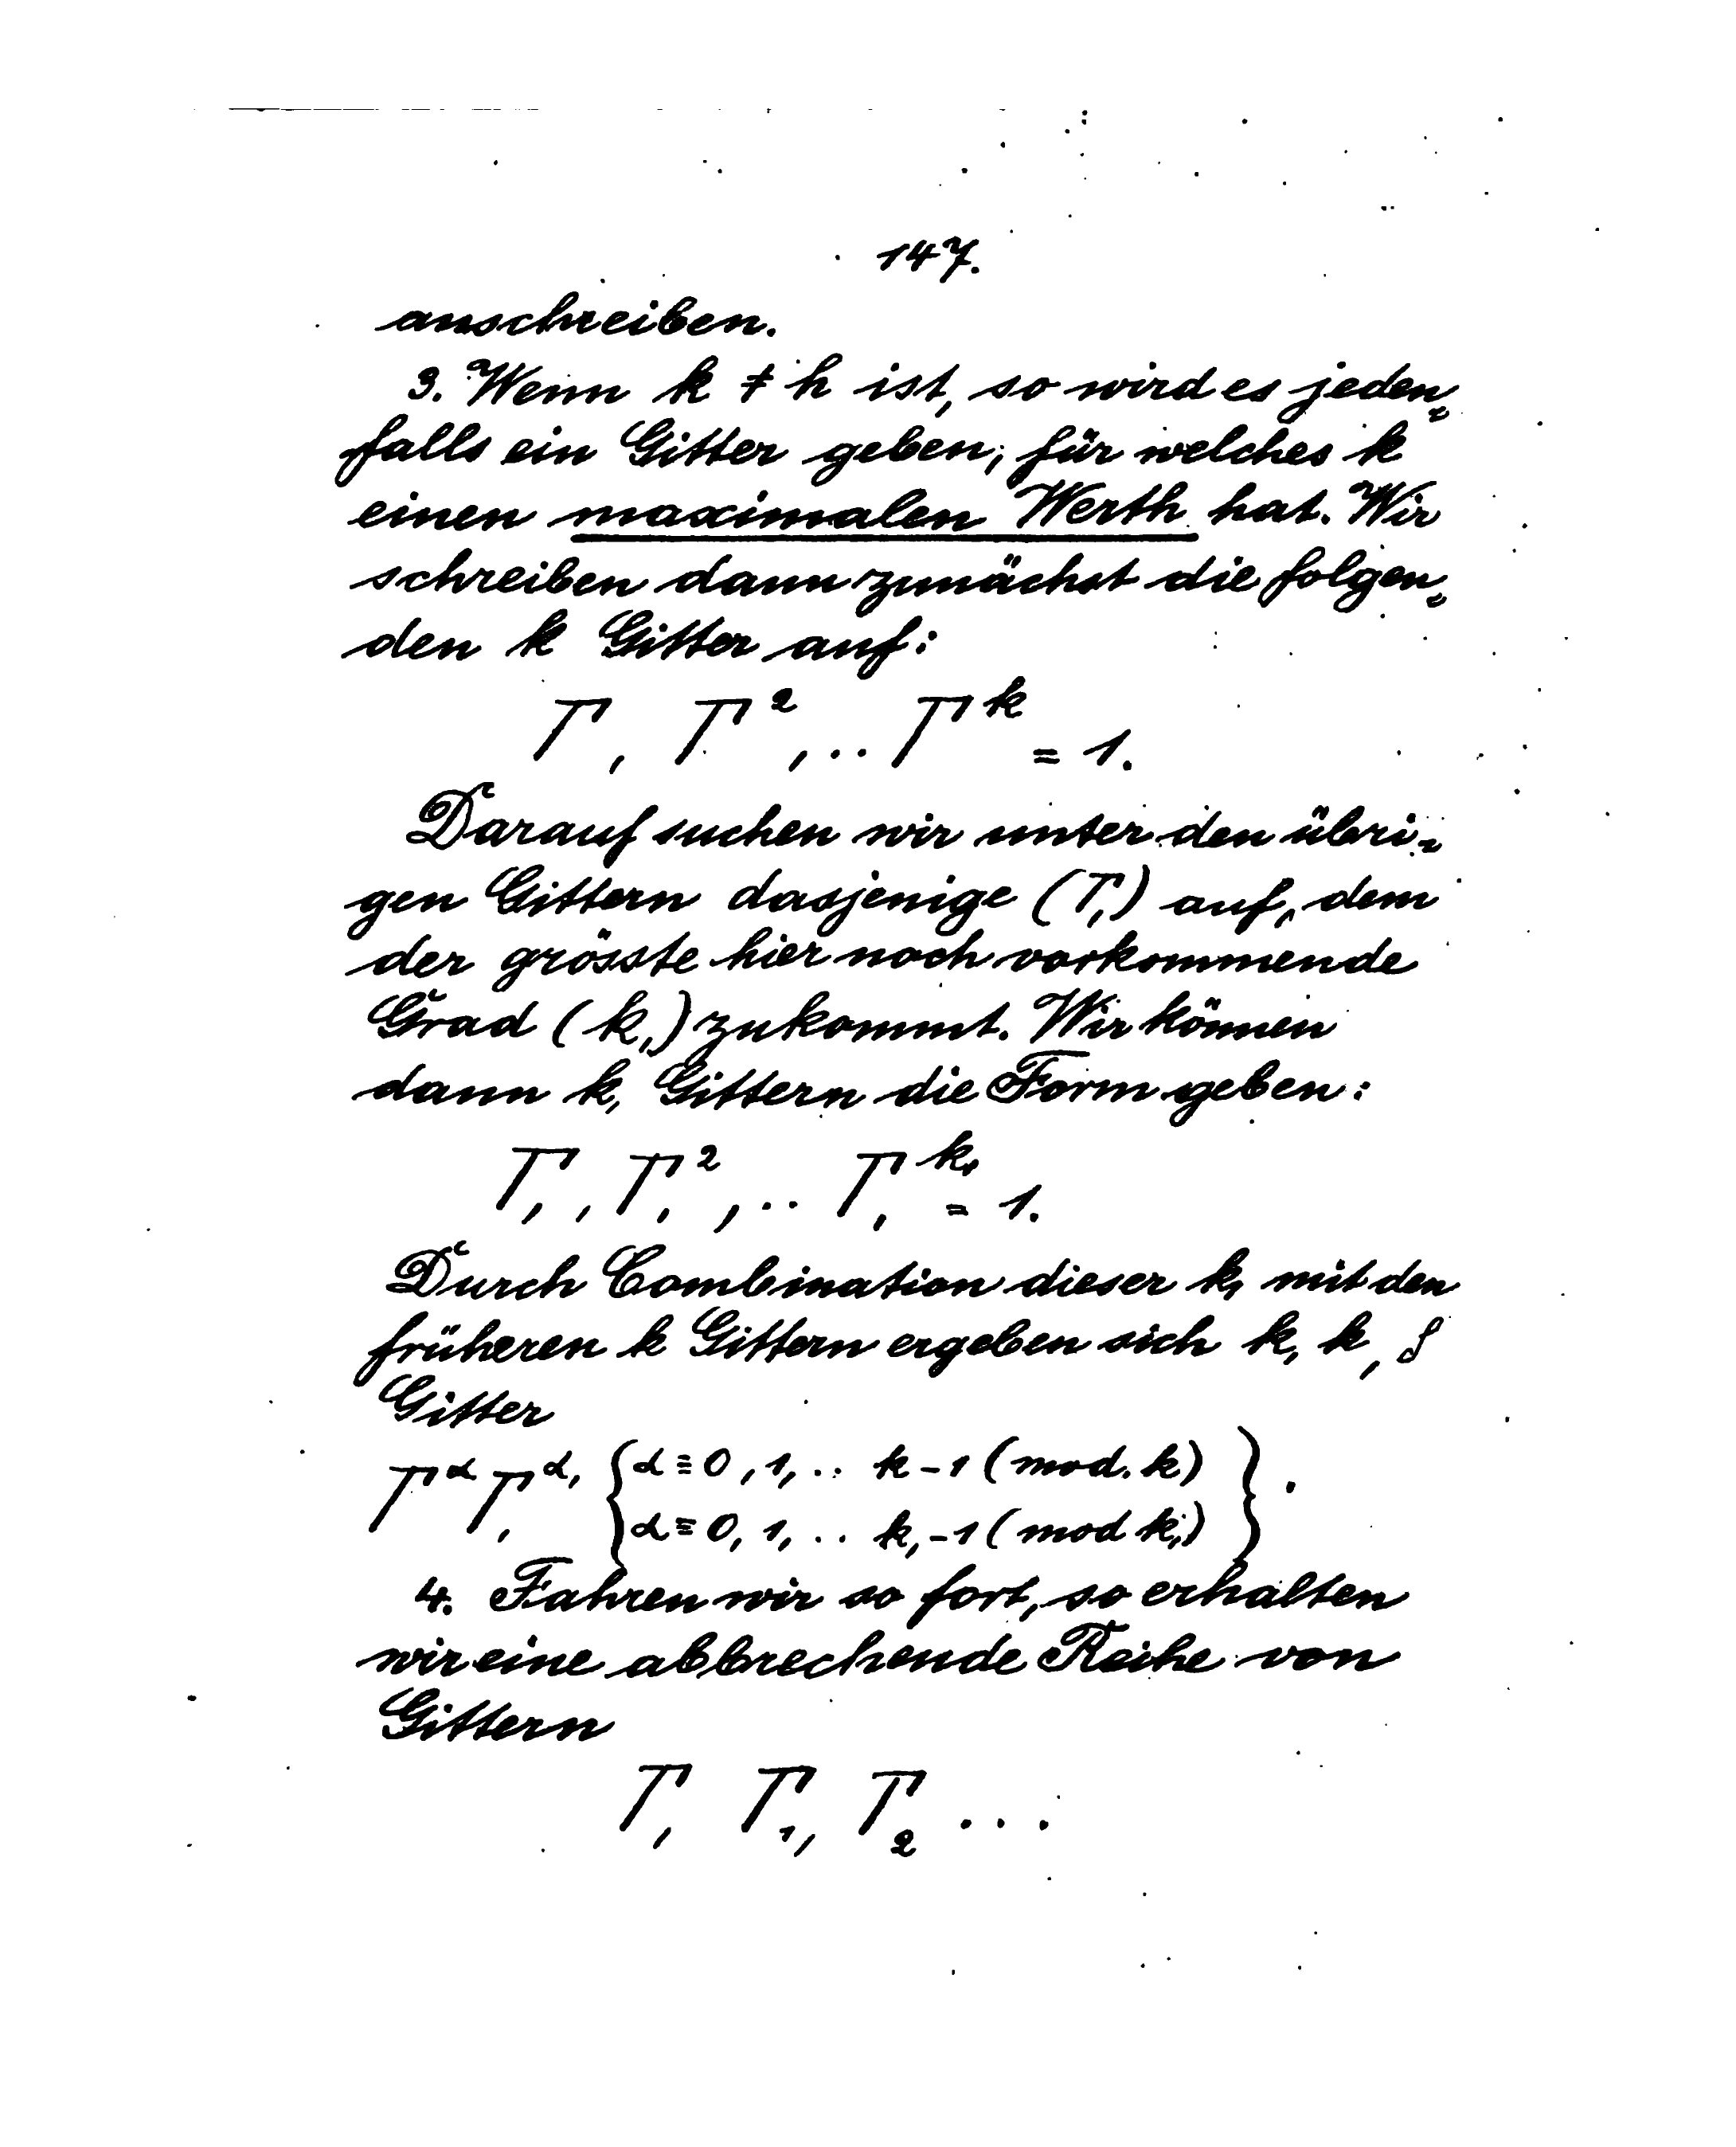 147.
anschreiben.
3. Wenn k ≠ h ist, so wird es jeden=
falls ein Gitter geben, für welches k
einen maximalen Werth hat. Wir
schreiben dann zunächst die folgen=
den k Gitter auf:
T, T², .. Tᵏ = 1.
Darauf suchen wir unter den übri=
gen Gittern dasjenige (T₁) auf, dem
der grösste hier noch vorkommende
Grad (k₁) zukommt. Wir können
dann k₁ Gittern die Form geben:
T₁, T₁², .. T₁^k₁ = 1.
Durch Combination dieser k₁ mit den
früheren k Gittern ergeben sich k, k₁
Gitter
T^α T₁^α₁ { α ≡ 0, 1, .. k-1 (mod. k)
α ≡ 0, 1, .. k₁-1 (mod k₁) }.
4. Fahren wir so fort, so erhalten
wir eine abbrechende Reihe von
Gittern
T, T₁, T₂ ...